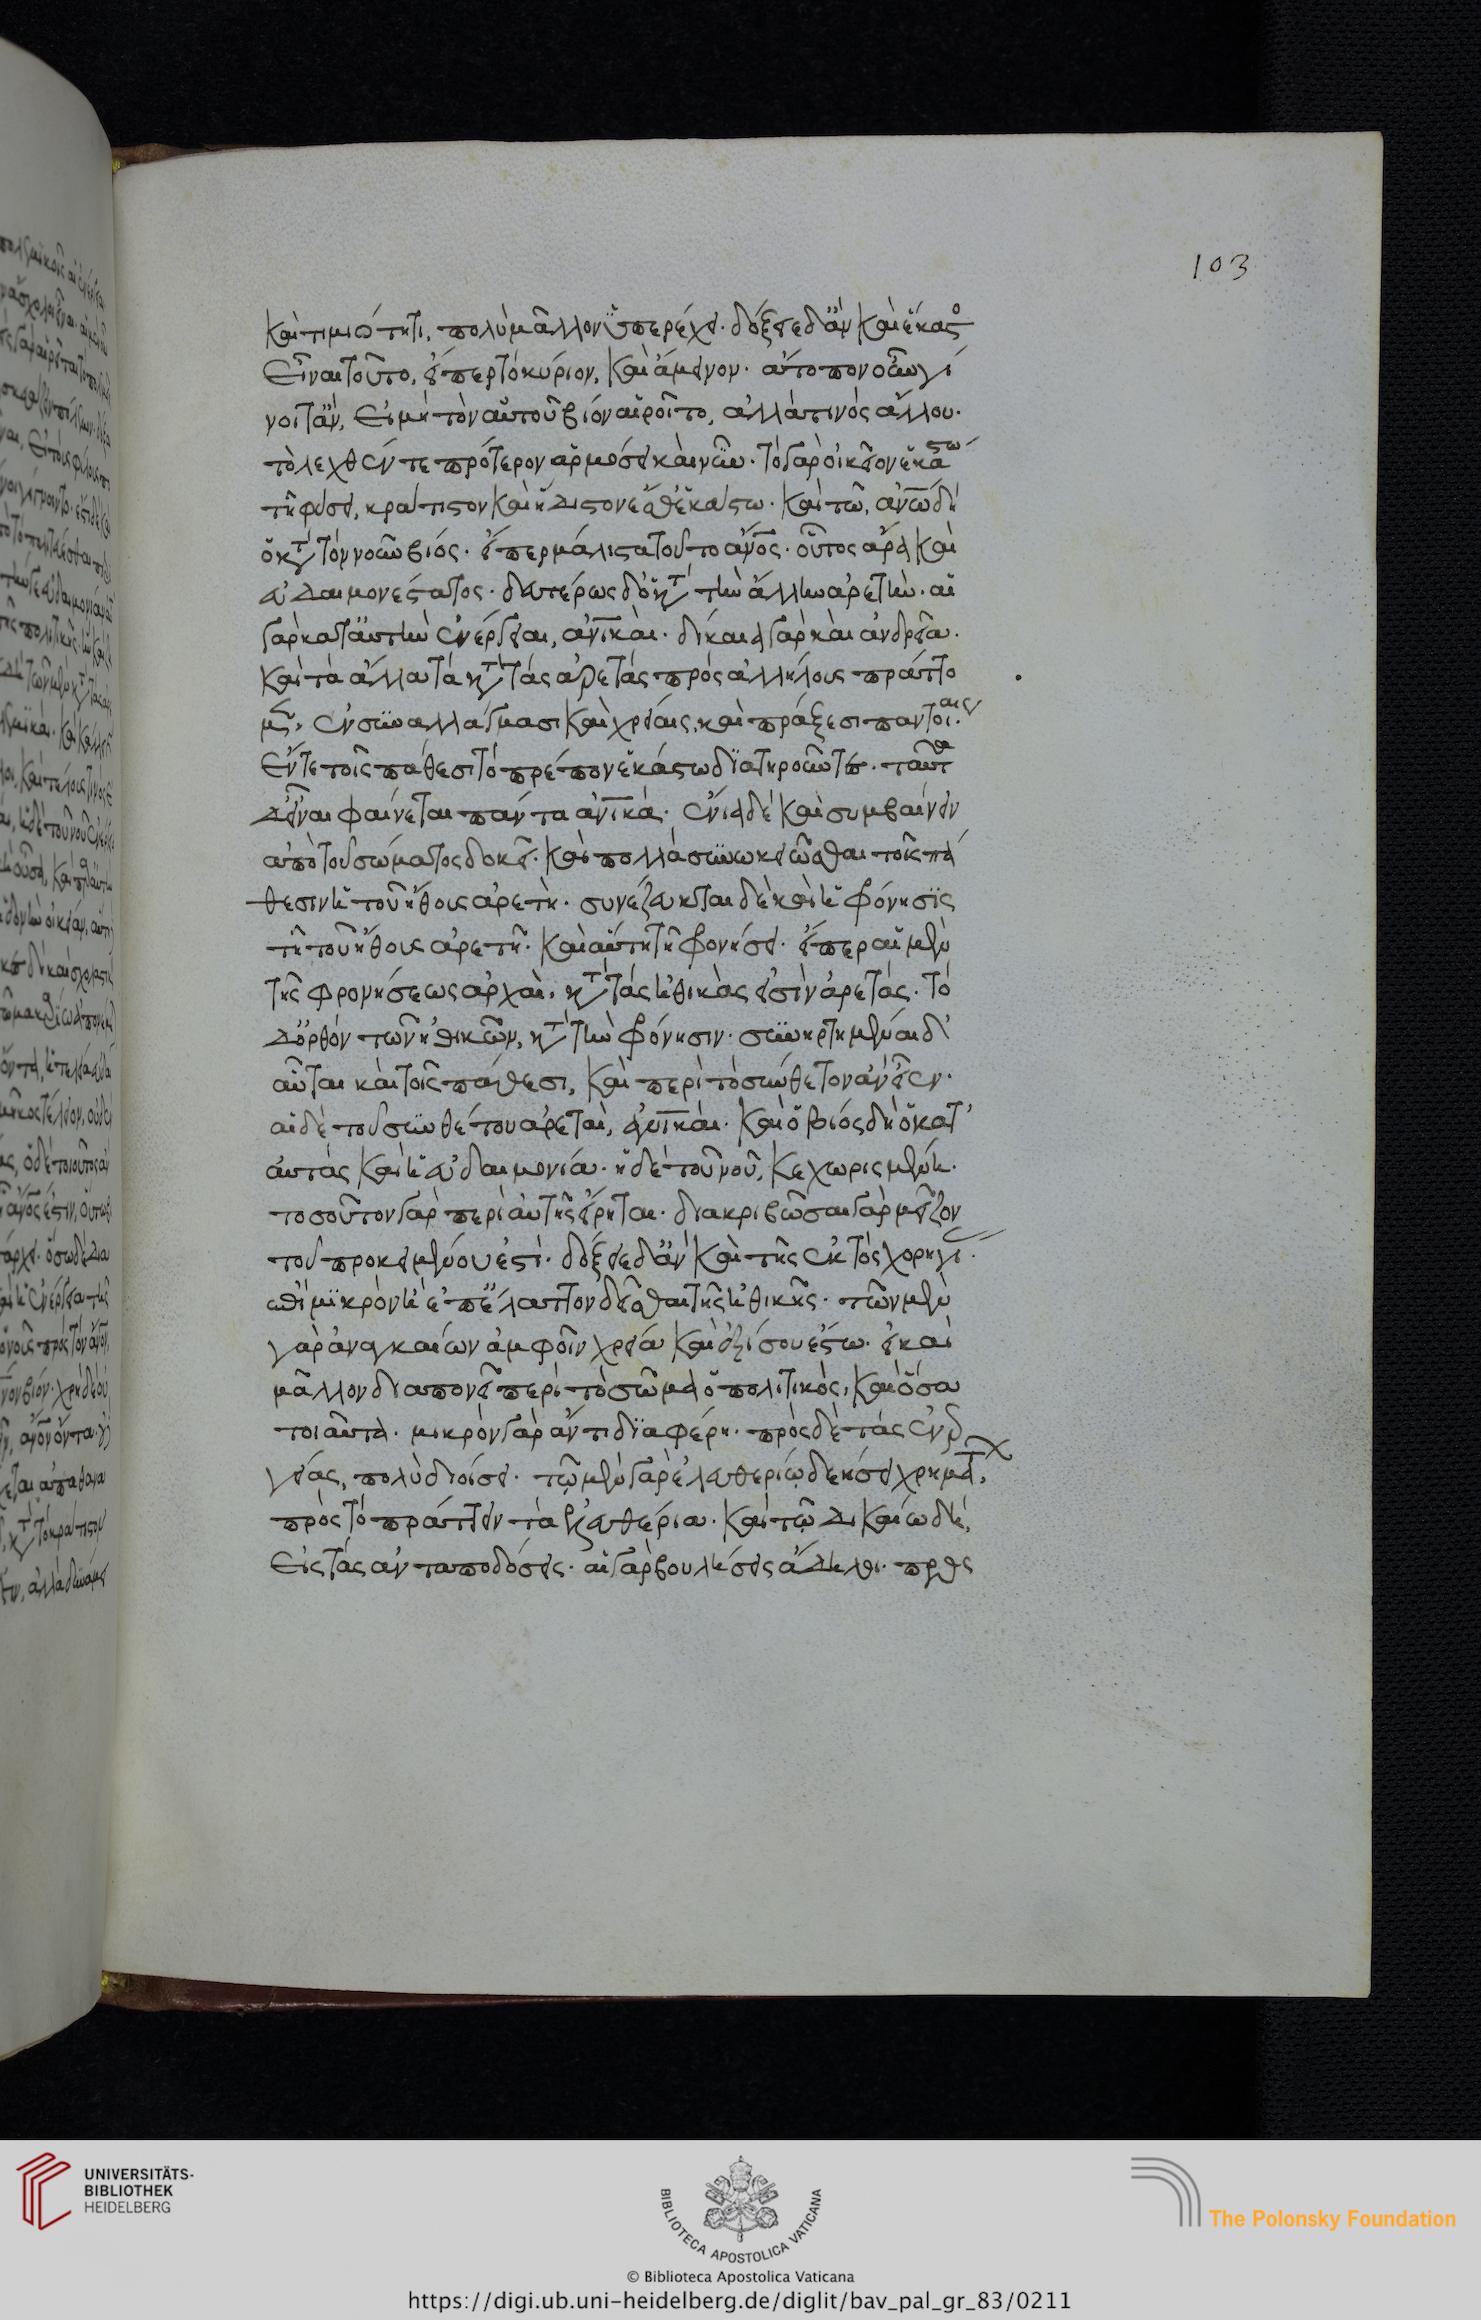 103
καὶ τιμιότητι, πολὺ μᾶλλον ὑπερέχει. δόξειε δ' ἂν καὶ ἕκαστο
εἶναι τοῦτο, εἴπερ τὸ κύριον, καὶ ἄμεινον. ἄτοπον οὖν γί
νοιτ' ἂν, εἰ μὴ τὸν αὑτοῦ βίον αἱροῖτο, ἀλλά τινος ἄλλου.
τὸ λεχθέν τε πρότερον ἁρμόσει καὶ νῦν. τὸ γὰρ οἰκεῖον ἑκάστω
τῆ φύσει, κράτιστον καὶ ἥδιστον ἐσθ' ἑκάστω. καὶ τῶ, ἀνῶ δὴ
ὁ κτ τὸν νοῦν βίος. εἴπερ μάλιστα τοῦτο ἄνος. οὗτος ἄρα καὶ
εὐδαιμονέστατος. δευτέρως δ' ὁ κτ τὴν ἄλλην ἀρετήν. αἱ
γὰρ κατ' αὐτὴν ἐνέργειαι, ἀνικαί. δίκαια γὰρ καὶ ἀνδρεῖα.
καὶ τὰ ἄλλα τὰ κτ τὰς ἀρετὰς πρὸς ἀλλήλους πράττο
μεν, ἐν συναλλάγμασι καὶ χρείαις, καὶ πράξεσι παντοίαις.
ἔν τε τοῖς πάθεσι τὸ πρέπον ἑκάστω διατηροῦντες. ταῦτα
δ' εἶναι φαίνεται πάντα ἀνικά. ἔνια δὲ καὶ συμβαίνειν
ἀπὸ τοῦ σώματος δοκεῖ. καὶ πολλὰ συνωκειῶσθαι τοῖς πά
θεσιν ἡ τοῦ ἤθους ἀρετή. συνέζευκται δὲ καὶ ἡ φρόνησις
τῆ τοῦ ἤθους ἀρετῆ. καὶ αὕτη τῆ φρονήσει. εἴπερ αἱ μὲν
τῆς φρονήσεως ἀρχαὶ, κτ τὰς ἠθικάς εἰσιν ἀρετάς. τὸ
δ' ὀρθὸν τῶν ἠθικῶν, κτ τὴν φρόνησιν. συνηρτημέναι δ'
αὗται καὶ τοῖς πάθεσι, καὶ περὶ τὸ σύνθετον ἂν εἶεν.
αἱ δὲ τοῦ συνθέτου ἀρεταὶ, ἀνικαί. καὶ ὁ βίος δὴ ὁ κατ'
αὐτὰς καὶ ἡ εὐδαιμονία. ἡ δὲ τοῦ νοῦ, κεχωρισμένη.
τοσοῦτον γὰρ περὶ αὐτῆς εἴρηται. διακριβῶσαι γὰρ μεῖζον
τοῦ προκειμένου ἐστί. δόξειε δ' ἂν καὶ τῆς ἐκτὸς χορηγί
ἐπὶ μικρὸν ἢ ἐπ' ἔλαττον δεῖσθαι τῆς ἠθικῆς. τῶν μὲν
γὰρ ἀναγκαίων ἀμφοῖν χρεία καὶ ἐξίσου ἔστω. εἰ καὶ
μᾶλλον διαπονεῖ περὶ τὸ σῶμα ὁ πολιτικὸς, καὶ ὅσα
τοιαῦτα. μικρὸν γὰρ ἄν τι διαφέρη. πρὸς δὲ τὰς ἐνερ
γείας, πολὺ διοίσει. τῷ μὲν γὰρ ἐλευθερίῳ δεήσει χρημάτ,
πρὸς τὸ πράττειν τὰ ἐλευθέρια. καὶ τῷ δικαίω δὲ,
εἰς τὰς ἀνταποδόσεις. αἱ γὰρ βουλήσεις ἄδηλοι.
UNIVERSITÄTS-
BIBLIOTHEK
HEIDELBERG
BIBLIOTECA APOSTOLICA VATICANA
© Biblioteca Apostolica Vaticana
The Polonsky Foundation
https://digi.ub.uni-heidelberg.de/diglit/bav_pal_gr_83/0211